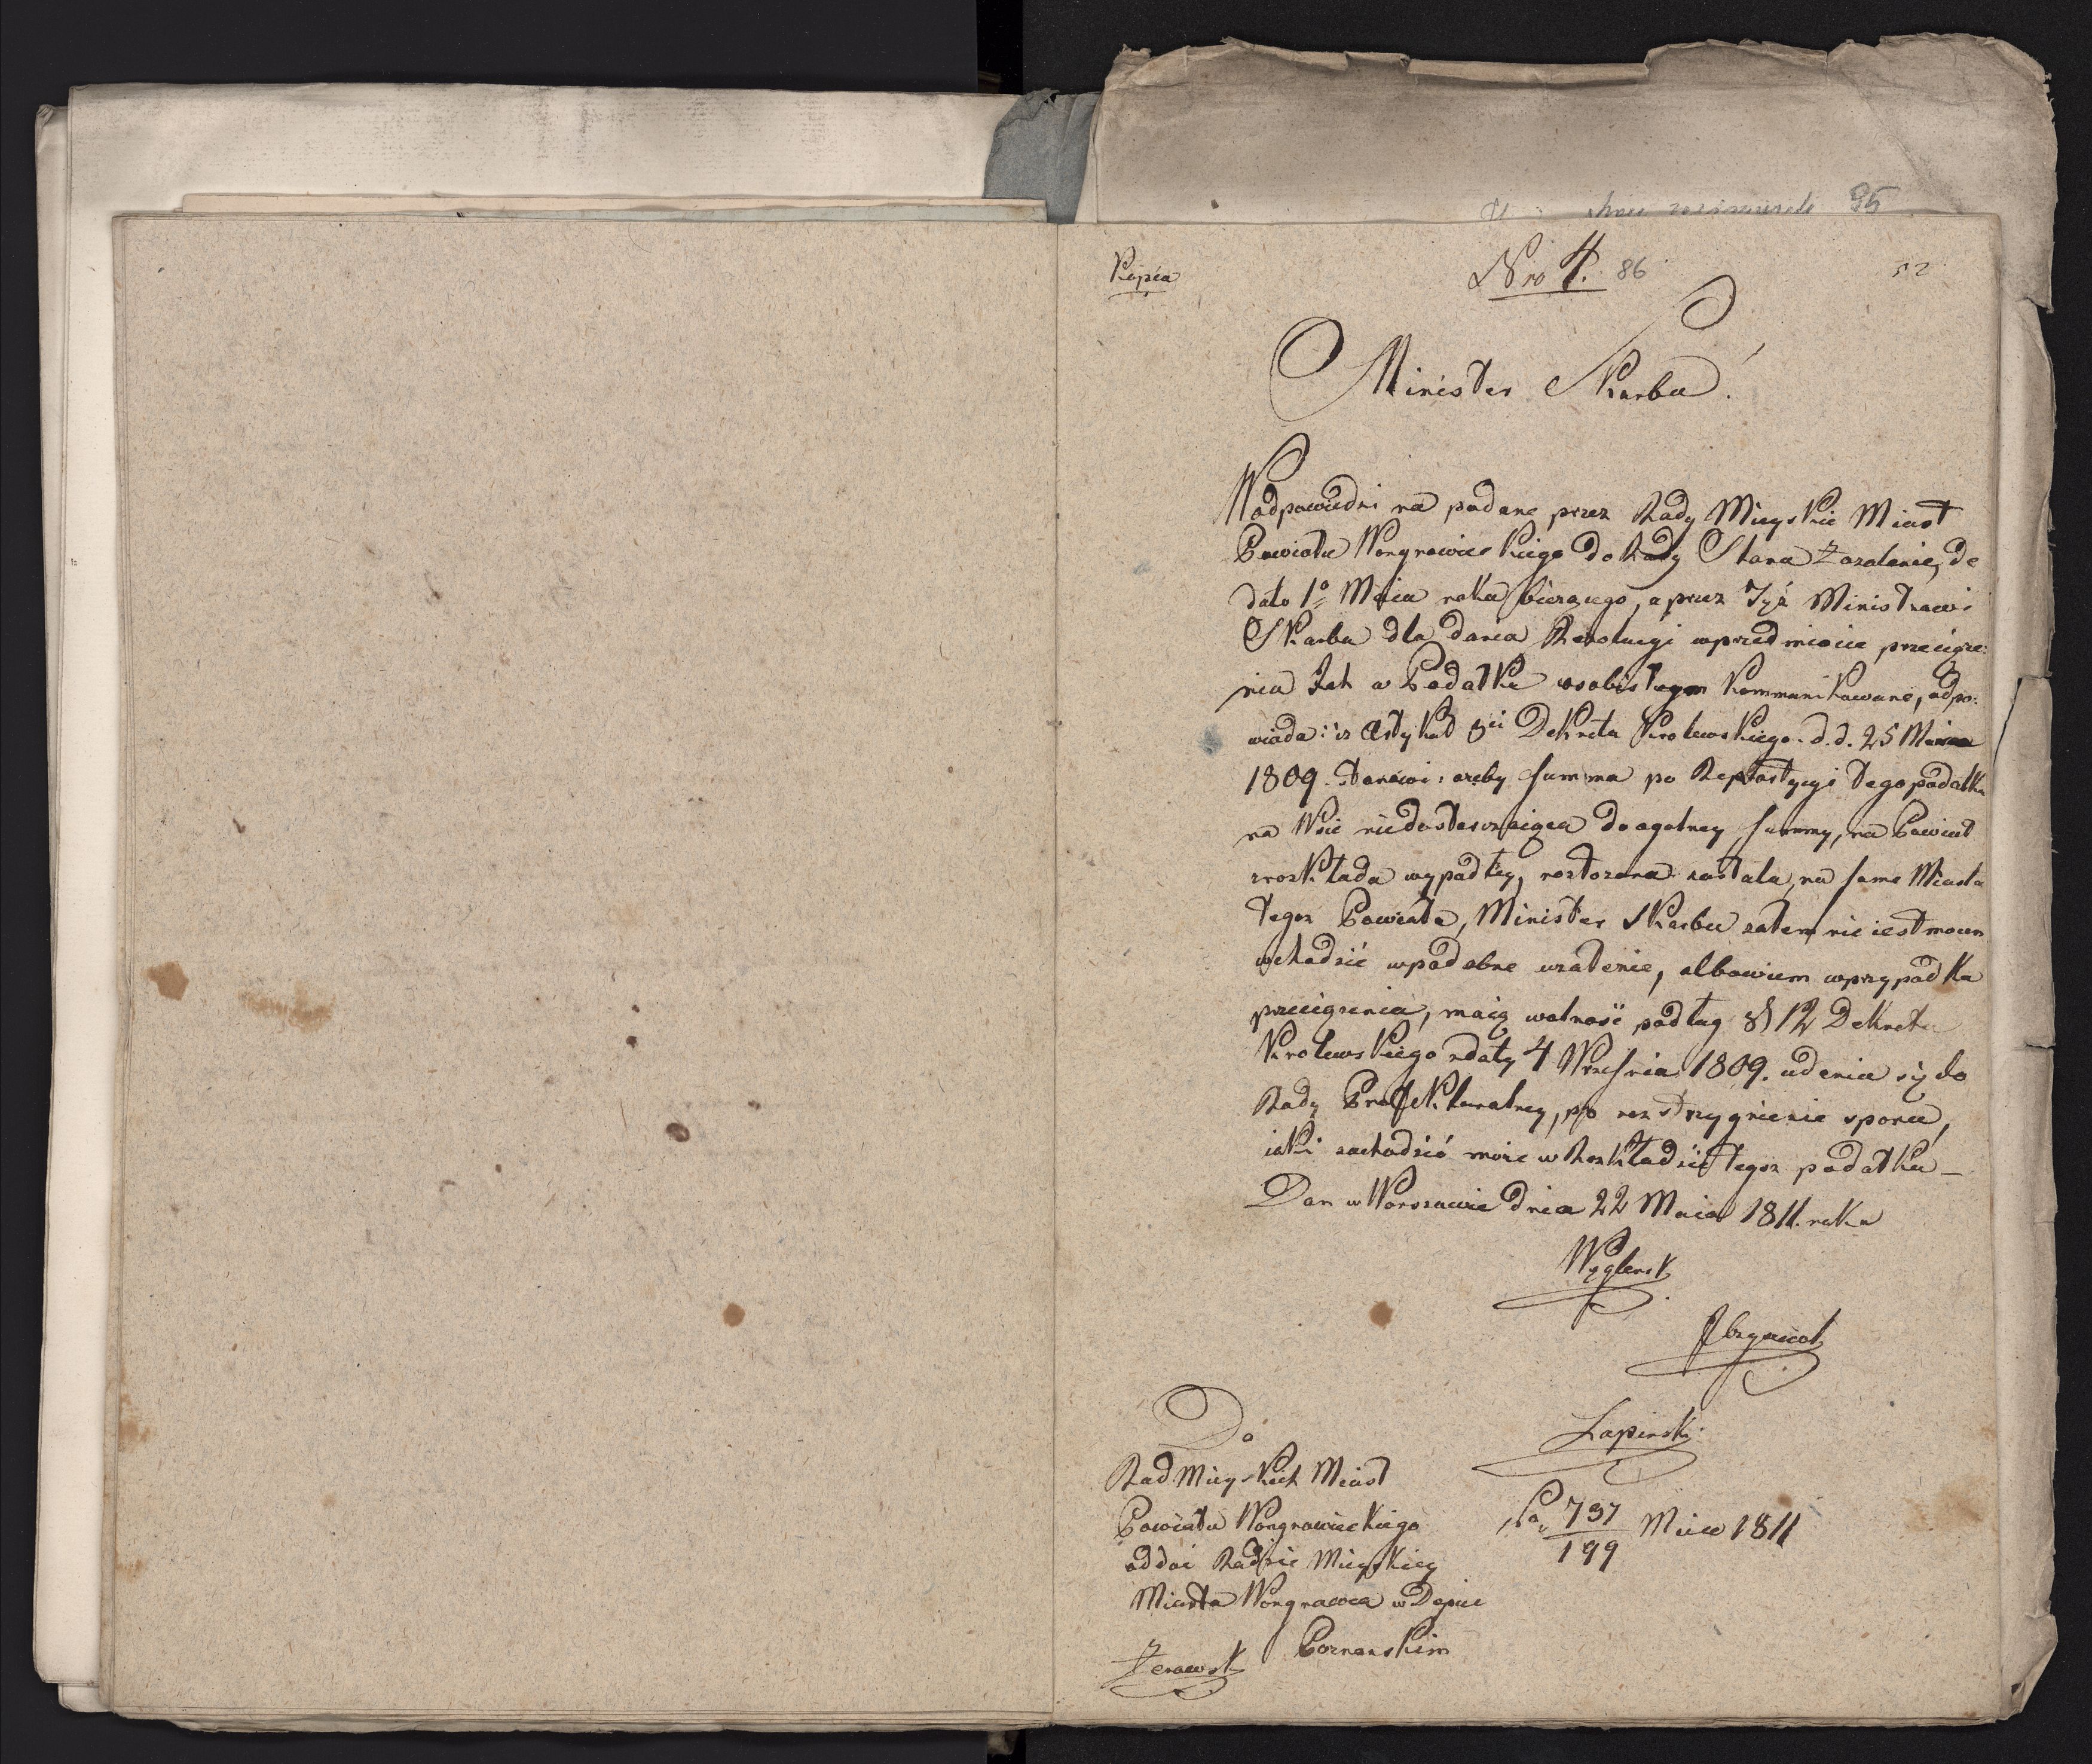 95
Kopia
Nro 4. 86
52
Minister Skarbu.
W odpowiedzi na podane przez Rady Mieyskie Miast
Powiatu Wongrowieckiego do Rady Stanu Zażalenie, de
dato 1o Maia roku bieżącego, a przez Tyż Ministrowi
Skarbu dla dania Rezolucyi wprzedmiocie przeciąże:
nia Ich w Podatku osobistym kommunikowane, odpo:
wiada: iż Artykuł 5ti Dekretu Krolewskiego d. d. 25 Marca
1809. stanowi, ażeby summa po Repartycyi tego podatku
na Wsie niedostarczaiąca do ogolney summy, na Powiat
zrozkładu wypadłey, rozłożona została, na same Miasta
tegoż Powiatu, Minister Skarbu zatem nie iest mocen
wchodzić wpodobne użalenie, albowiem wprzypadku
przeciążenia, maią wolność podług § 12 Dekretu
Krolewskiego z daty 4 Września 1809. udania się do
Rady Prefekturalney, po rozstrzygnienie sporu,
iaki zachodzić może w Rozkładzie tegoż podatku –
Dan w Warszawie dnia 22 Maia 1811. roku
Węglensk
Łapinski
Do
Rad Mieyskich Miast
Powiatu Wongrowieckiego
oddać Radzie Mieyskiey
Miasta Wongrowca w Depcie
Poznanskim
737
199
Maia 1811
Żerawsk